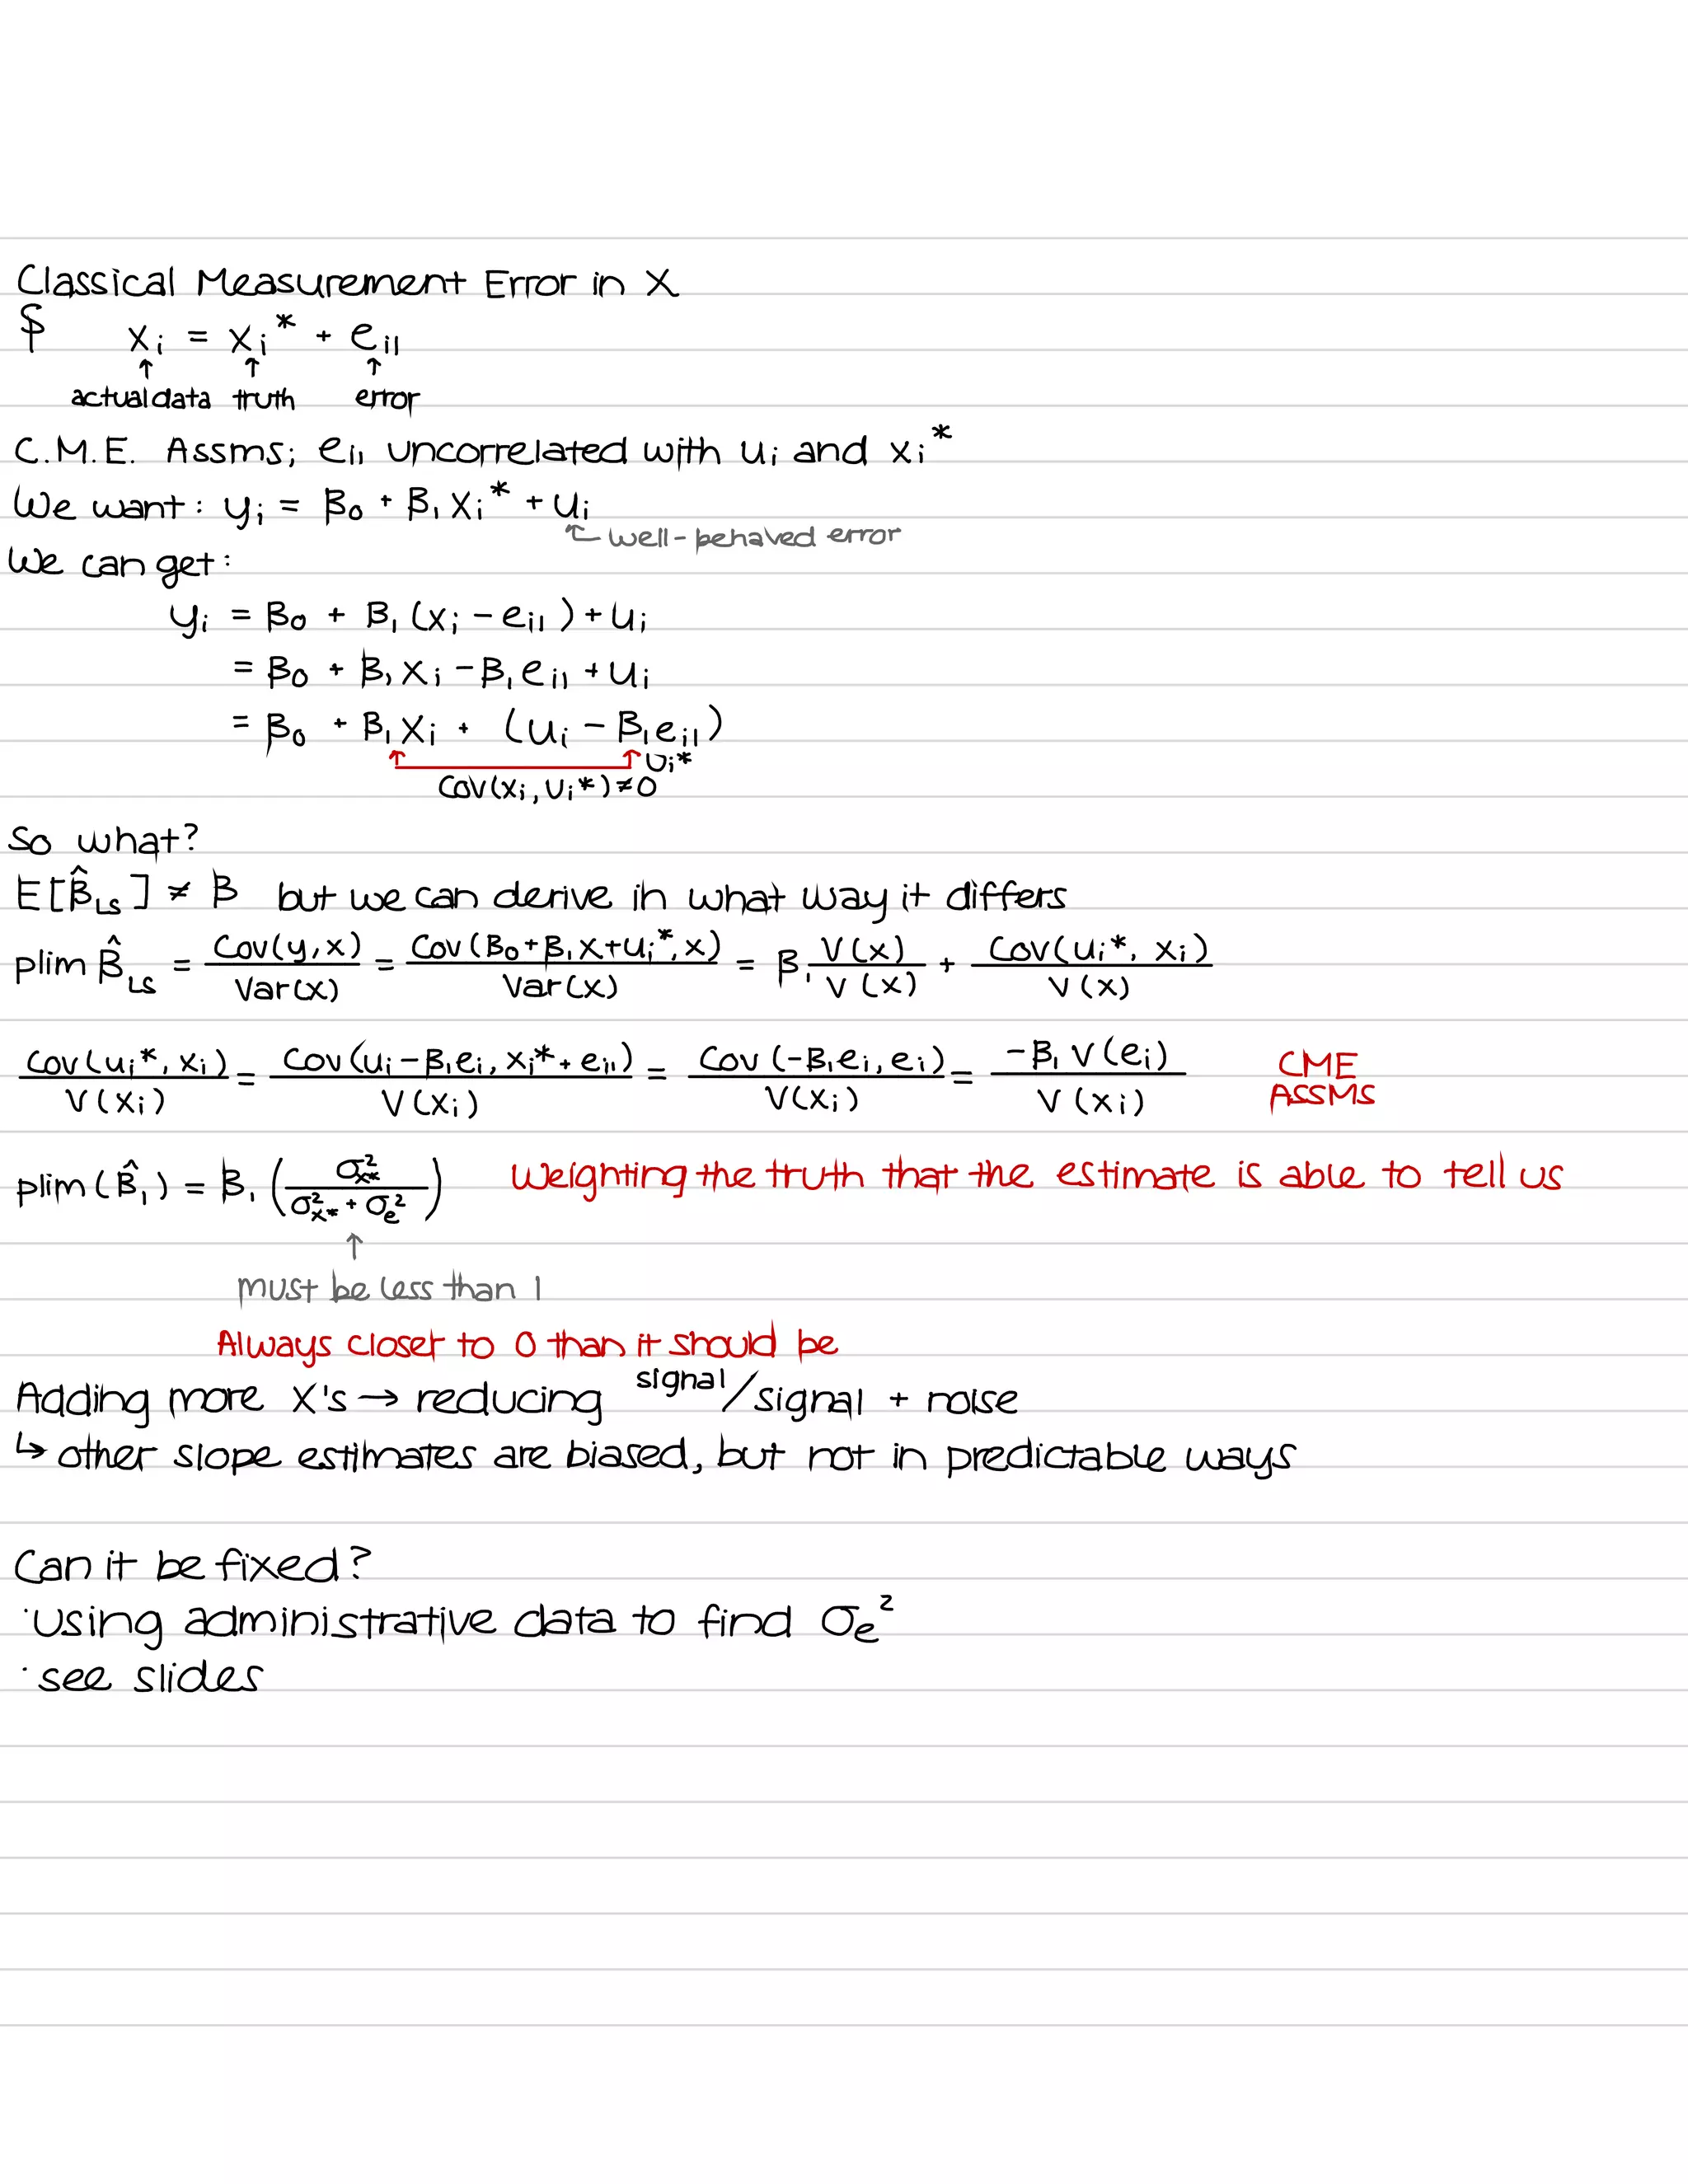 Classical Measurement Error in X
$ xᵢ = xᵢ* + eᵢ₁
↑ ↑ ↑
actual data truth error
C.M.E. Assms; eᵢ₁ uncorrelated with uᵢ and xᵢ*
We want: yᵢ = β₀ + β₁xᵢ* + uᵢ
↑ well-behaved error
We can get:
yᵢ = β₀ + β₁(xᵢ - eᵢ₁) + uᵢ
= β₀ + β₁xᵢ - β₁eᵢ₁ + uᵢ
= β₀ + β₁xᵢ + (uᵢ - β₁eᵢ₁)
↑ ↑ uᵢ*
Cov(xᵢ, uᵢ*) ≠ 0
So what?
E[β̂_LS] ≠ β but we can derive in what way it differs
plim β̂_LS = Cov(y,x)/Var(x) = Cov(β₀+β₁x+uᵢ*, x)/Var(x) = β₁ V(x)/V(x) + Cov(uᵢ*, xᵢ)/V(x)
Cov(uᵢ*, xᵢ)/V(xᵢ) = Cov(uᵢ-β₁eᵢ, xᵢ*+eᵢ₁)/V(xᵢ) = Cov(-β₁eᵢ, eᵢ)/V(xᵢ) = -β₁V(eᵢ)/V(xᵢ) CME
ASSMS
plim(β̂₁) = β₁(σ²ₓ*/(σ²ₓ* + σₑ²)) Weighting the truth that the estimate is able to tell us
↑
must be less than 1
Always closer to 0 than it should be
Adding more X's → reducing signal/signal + noise
↳ other slope estimates are biased, but not in predictable ways
Can it be fixed?
· using administrative data to find σₑ²
· see slides